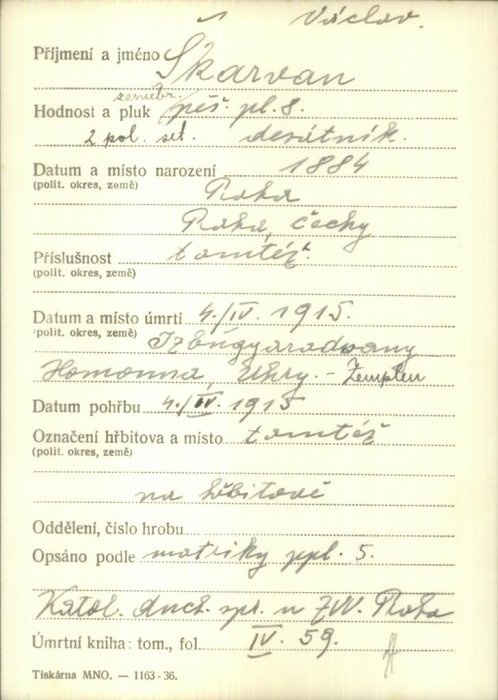 Václav.
Příjmení a jméno Škarvan
zeměbr.
Hodnost a pluk pěš. pl. 8.
2 pol. set. desátník.
Datum a místo narození 1884
(polit. okres, země) Praha
Praha, Čechy
Příslušnost tamtéž.
(polit. okres, země)
Datum a místo úmrtí 4./IV. 1915.
(polit. okres, země) Izbugyaradvany
Homonna, Uhry. - Zemplen
Datum pohřbu 4./IV. 1915
Označení hřbitova a místo tamtéž
(polit. okres, země)
na hřbitově
Oddělení, číslo hrobu
Opsáno podle matriky ppl. 5.
Katol. duch. spr. u ZVV. Praha
Úmrtní kniha: tom., fol. IV. 59.
Tiskárna MNO. — 1163-36.